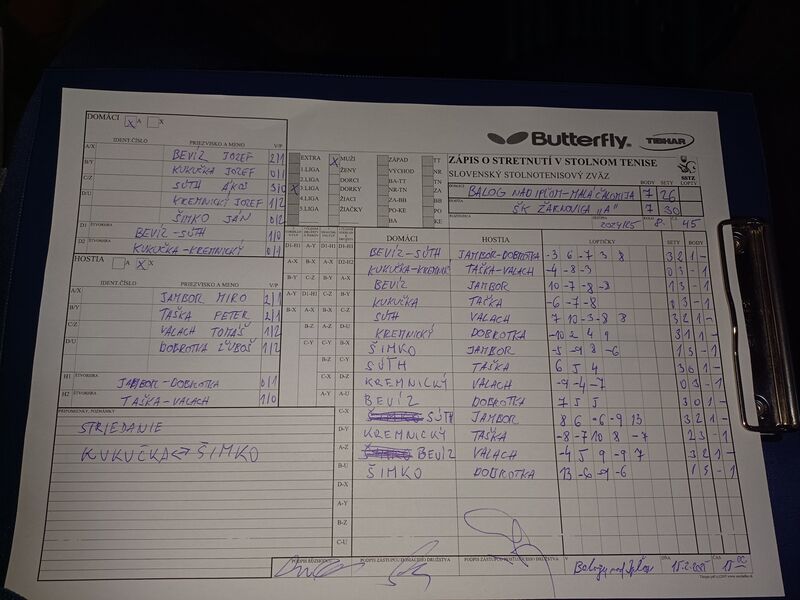 DOMÁCI X A X
Butterfly. TIBHAR
IDENT.ČÍSLO PRIEZVISKO A MENO V/P
A/X BEVÍZ JOZEF 2/1
B/Y KUKUČKA JOZEF 0/1
C/Z SÚTH ÁKOS 3/0
D/U KREMNICKÝ JOZEF 1/2
ŠIMKO JÁN 0/2
D1 ŠTVORHRA BEVÍZ-SÚTH 1/0
D2 ŠTVORHRA KUKUČKA-KREMNICKÝ 0/1
EXTRA X MUŽI ZÁPAD TT
1.LIGA ŽENY VÝCHOD NR
2.LIGA DORCI BA-TT TN
X 3.LIGA DORKY NR-TN ZA
4.LIGA ŽIACI ZA-BB BB
5.LIGA ŽIAČKY PO-KE PO
BA KE
ZÁPIS O STRETNUTÍ V STOLNOM TENISE
SLOVENSKÝ STOLNOTENISOVÝ ZVÄZ
SSTZ
DOMÁCI BODY SETY LOPTY
BALOG NAD IPĽOM-MALÁ ČALOMIJA 7 26
HOSTIA ŠK ŽARNOVICA "A" 7 30
2024/25 8. 45
HOSTIA A X X
IDENT.ČÍSLO PRIEZVISKO A MENO V/P
A/X JAMBOR MIRO 2/1
B/Y TAŠKA PETER 2/1
C/Z VALACH TOMÁŠ 1/2
D/U DOBROTKA ĽUBOŠ 1/2
H1 ŠTVORHRA JAMBOR-DOBROTKA 0/1
H2 ŠTVORHRA TAŠKA-VALACH 1/0
PRIPOMIENKY, POZNÁMKY
STRIEDANIE
KUKUČKA ↔ ŠIMKO
DOMÁCI HOSTIA LOPTIČKY SETY BODY
BEVÍZ-SÚTH JAMBOR-DOBROTKA -3 6 -7 3 8 3 2 1 -
KUKUČKA-KREMNIC TAŠKA-VALACH -4 -8 -3 0 3 - 1
BEVÍZ JAMBOR 10 -7 -8 -8 1 3 - 1
KUKUČKA TAŠKA -6 -7 -8
SÚTH VALACH 7 10 -3 -8 8 3 2 1 -
KREMNICKÝ DOBROTKA -10 2 4 9 3 1 1 -
ŠIMKO JAMBOR -5 -9 8 -6 1 3 - 1
SÚTH TAŠKA 6 5 4 3 0 1 -
KREMNICKÝ VALACH -9 -4 -7 0 3 - 1
BEVÍZ DOBROTKA 7 5 5 3 0 1 -
SÚTH JAMBOR 8 6 -6 -9 13 3 2 1 -
KREMNICKÝ TAŠKA -8 -7 10 8 -7 2 3 - 1
BEVÍZ VALACH -4 5 9 -9 7 3 2 1 -
ŠIMKO DOBROTKA 13 -6 -9 -6 1 3 - 1
PODPIS ROZHODCU PODPIS ZÁSTUPCU DOMÁCEHO DRUŽSTVA PODPIS ZÁSTUPCU HOSŤUJÚCEHO DRUŽSTVA V DŇA 15.2.2025 ČAS 15 00